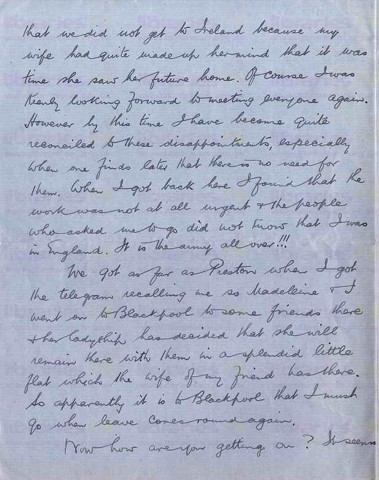 that we did not get to Ireland because my
wife had quite made up her mind that it was
time she saw her future home. Of course I was
keenly looking forward to meeting everyone again.
However by this time I have become quite
reconciled to these disappointments, especially
when one finds later that there is no need for
them. When I got back here I found that the
work was not at all urgent & the people
who asked me to go did not know that I was
in England. It is the army all over!!!
We got as far as Preston when I got
the telegram recalling me so Madeleine & I
went on to Blackpool to some friends there
& her ladyship has decided that she will
remain there with them in a splendid little
flat which the wife of my friend has there.
So apparently it is to Blackpool that I must
go when leave comes round again.
Now how are you getting on? It seems